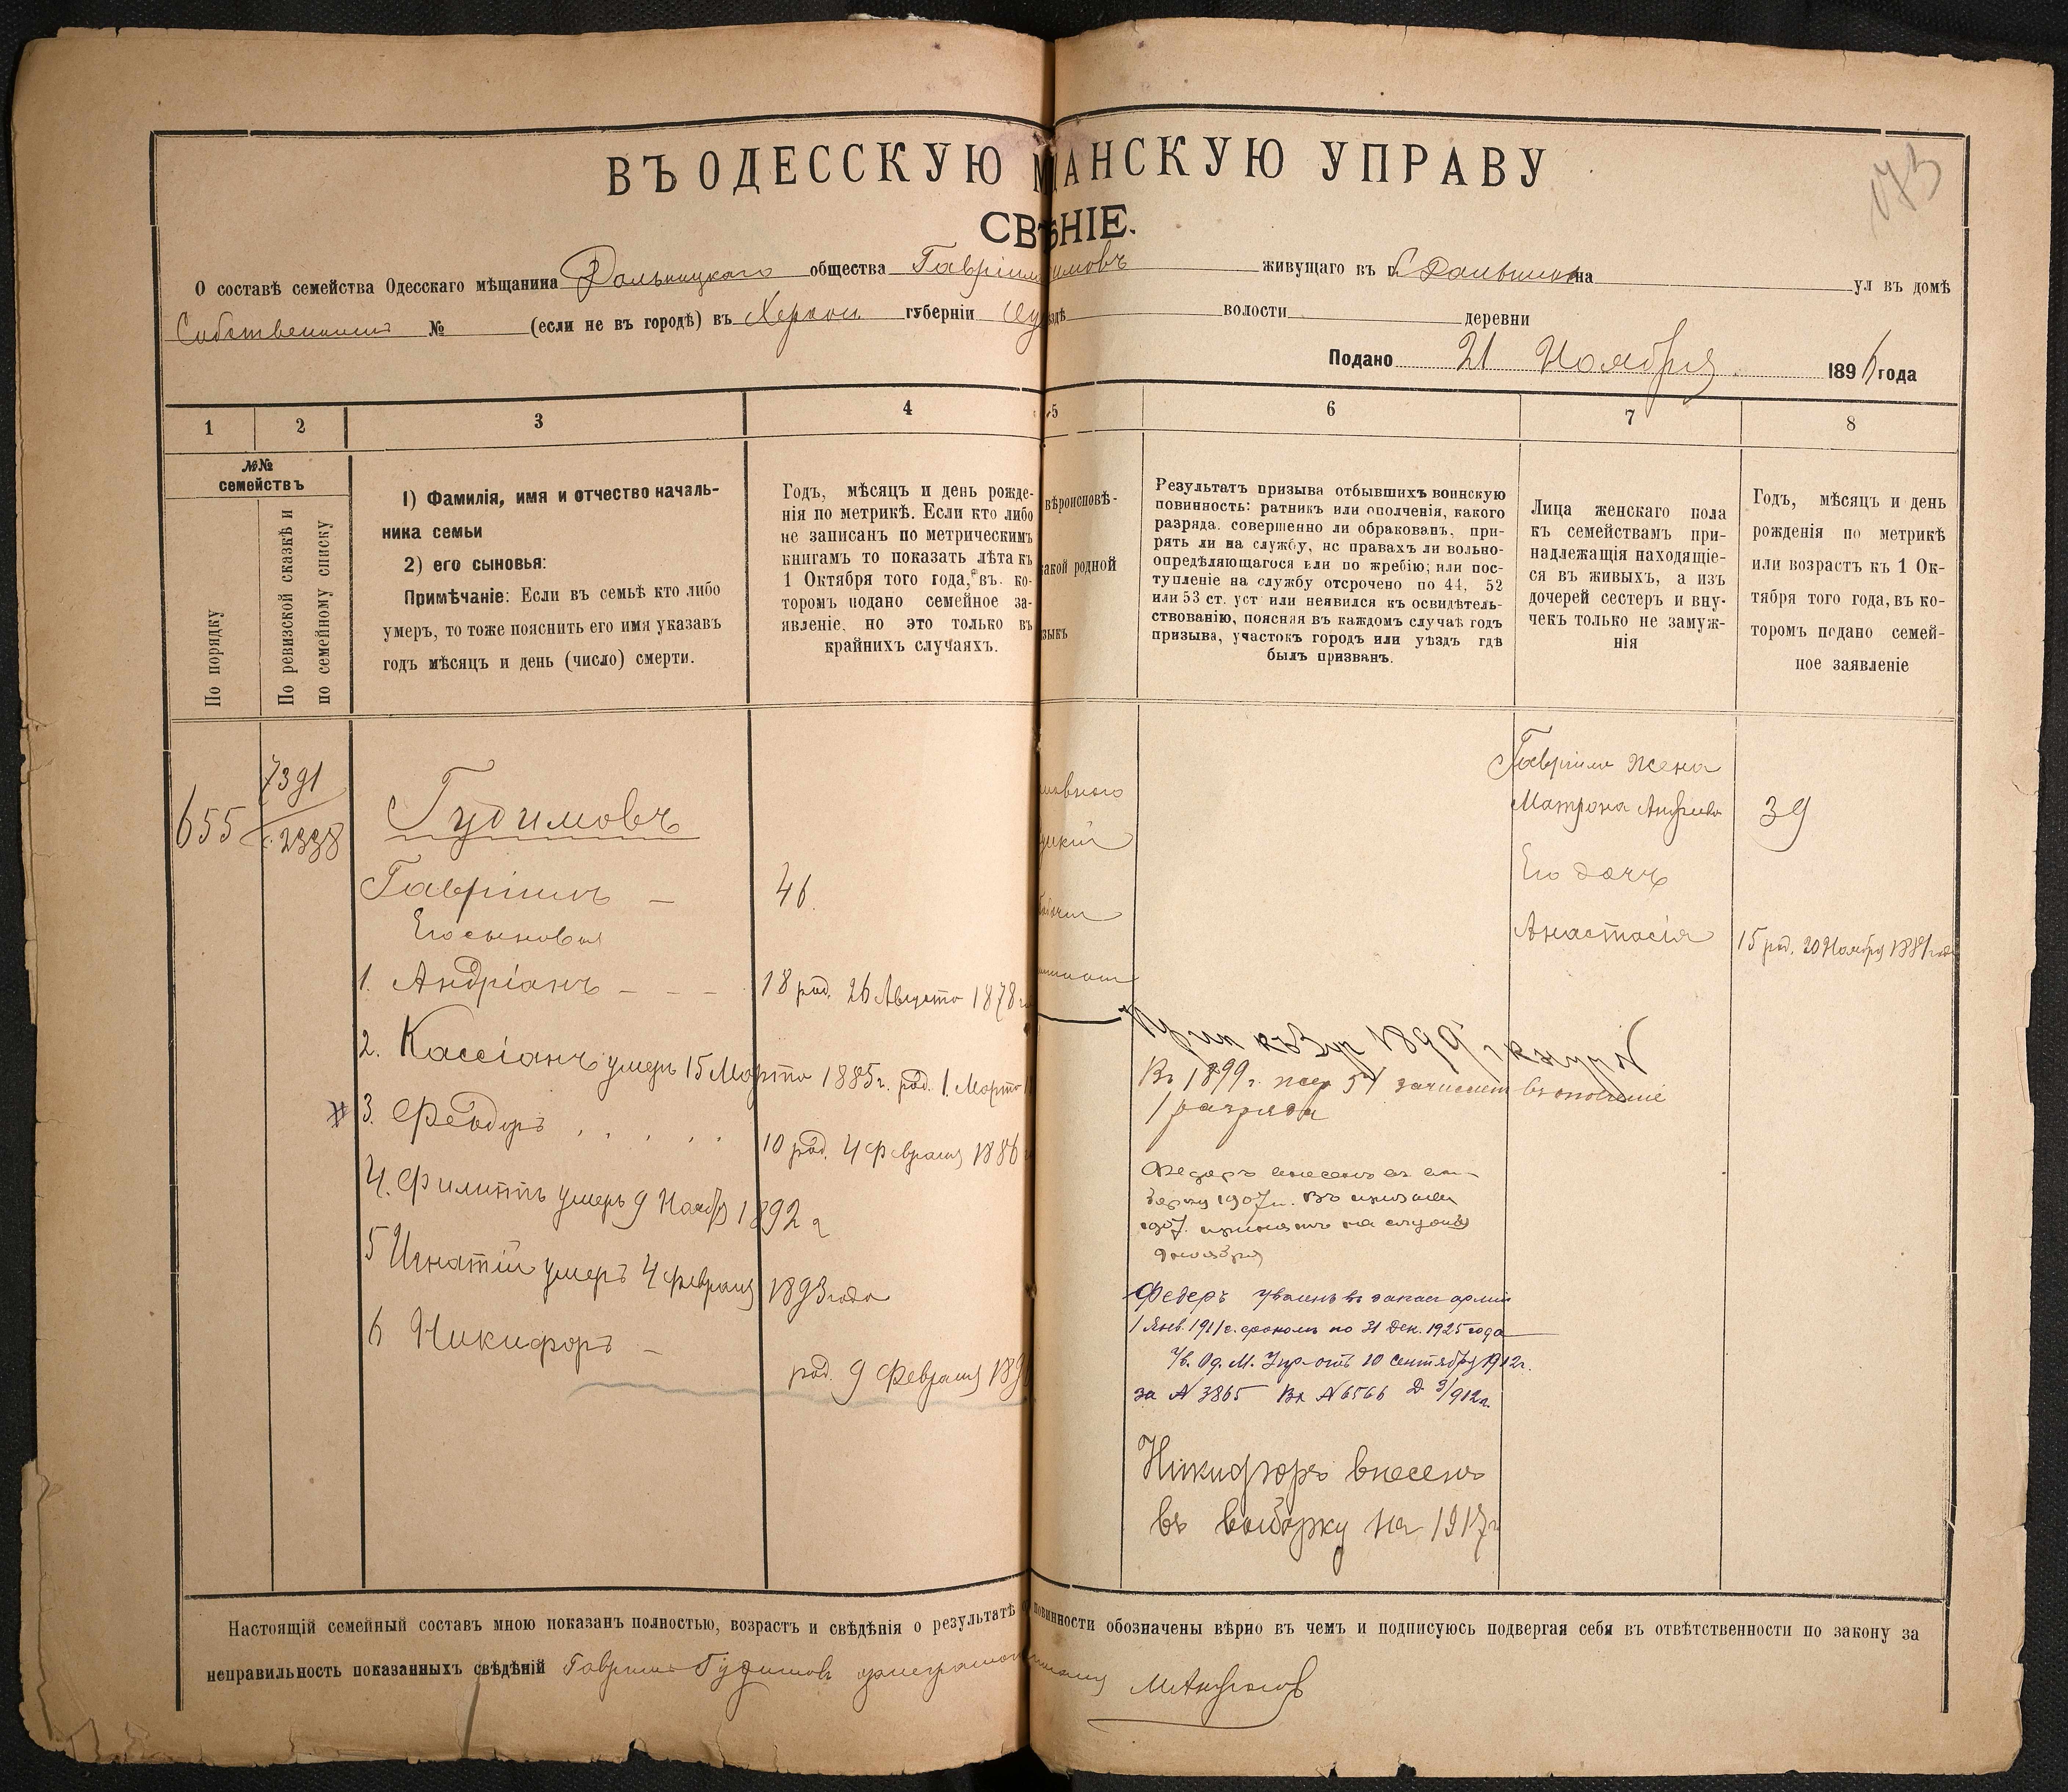 ВЪ ОДЕССКУЮ М АНСКУЮ УПРАВУ
073
СВѢ НІЕ.
О составѣ семейства Одесскаго мѣщанина Дальницкаго общества Гавріила имовъ живущаго въ г. с Дальник на ул въ домѣ
Собственномъ № (если не въ городѣ) въ Херсон губерніи Од ѣздѣ волости деревни
Подано 21 Ноября 1896 года
1 2 3 4 5 6 7 8
№№ семействъ
По порядку
По ревизской сказкѣ и по семейному списку
1) Фамилія, имя и отчество началь-
ника семьи
2) его сыновья:
Примѣчаніе: Если въ семьѣ кто либо
умеръ, то тоже пояснить его имя указавъ
годъ мѣсяцъ и день (число) смерти.
Годъ, мѣсяцъ и день рожде-
нія по метрикѣ. Если кто либо
не записанъ по метрическимъ
книгамъ то показать лѣта къ
1 Октября того года, въ. ко-
торомъ подано семейное за-
явленіе. но это только въ
крайнихъ случаяхъ.
вѣроисповѣ-
акой родной
зыкъ
Результатъ призыва отбывшихъ воинскую
повинность: ратникъ или ополченія, какого
разряда. совершенно ли обракованъ. при-
рятъ ли на службу, нс правахъ ли вольно-
опредѣляющагося или по жребію; или пос-
тупленіе на службу отсрочено по 44, 52
или 53 ст. уст или неявился къ освидѣтель-
ствованію, поясняя въ каждомъ случаѣ годъ
призыва, участокъ городъ или уѣздъ гдѣ
былъ призванъ.
Лица женскаго пола
къ семействамъ при-
надлежащія находящіе-
ся въ живыхъ, а изъ
дочерей сестеръ и вну-
чекъ только не замуж-
нія
Годъ, мѣсяцъ и день
рожденія по метрикѣ
или возрастъ къ 1 Ок-
тября того года, въ ко-
торомъ подано семей-
ное заявленіе
655
7391
2338
Гудимовъ
Гавріилъ — 46.
Его сыновья
1. Андріанъ — — — 18 род. 26 Августа 1878
2. Кассіанъ умеръ 15 Марта 1885г. род. 1. Марта
3. Феодоръ . . . . . 10 род. 4 Февраля 1886
4. Филиппъ умеръ 9 Ноябр 1892 г
5 Игнатій умеръ 4 февраля 1893 года
6 Никифоръ — род. 9 Февраля 189
Гавріила жена
Матрона Андреева 39
Его дочь
Анастасія 15 род. 20 Ноября 1881 года
1899
Въ 1899 г. 54 зачисленъ въ ополченіе
1 разряда
Федоръ внесенъ въ вы-
борку 1907 г. Въ призывъ
1907. принятъ на службу
9 ноября
Федеръ Уволенъ въ запасъ арміи
1 Янв. 1911 г. срокомъ по 31 Дек. 1925 года
Ув. Од. М. Упр-отъ 10 Сентября 1912г.
за № 3865 Вх № 6566 Д 3/912г.
Никифоръ внесенъ
въ выборку на 1917г
Настоящій семейный составъ мною показанъ полностью, возрастъ и свѣдѣнія о результатѣ повинности обозначены вѣрно въ чемъ и подписуюсь подвергая себя въ отвѣтственности по закону за
неправильность показанныхъ свѣдѣній Гавріилъ Гудимовъ